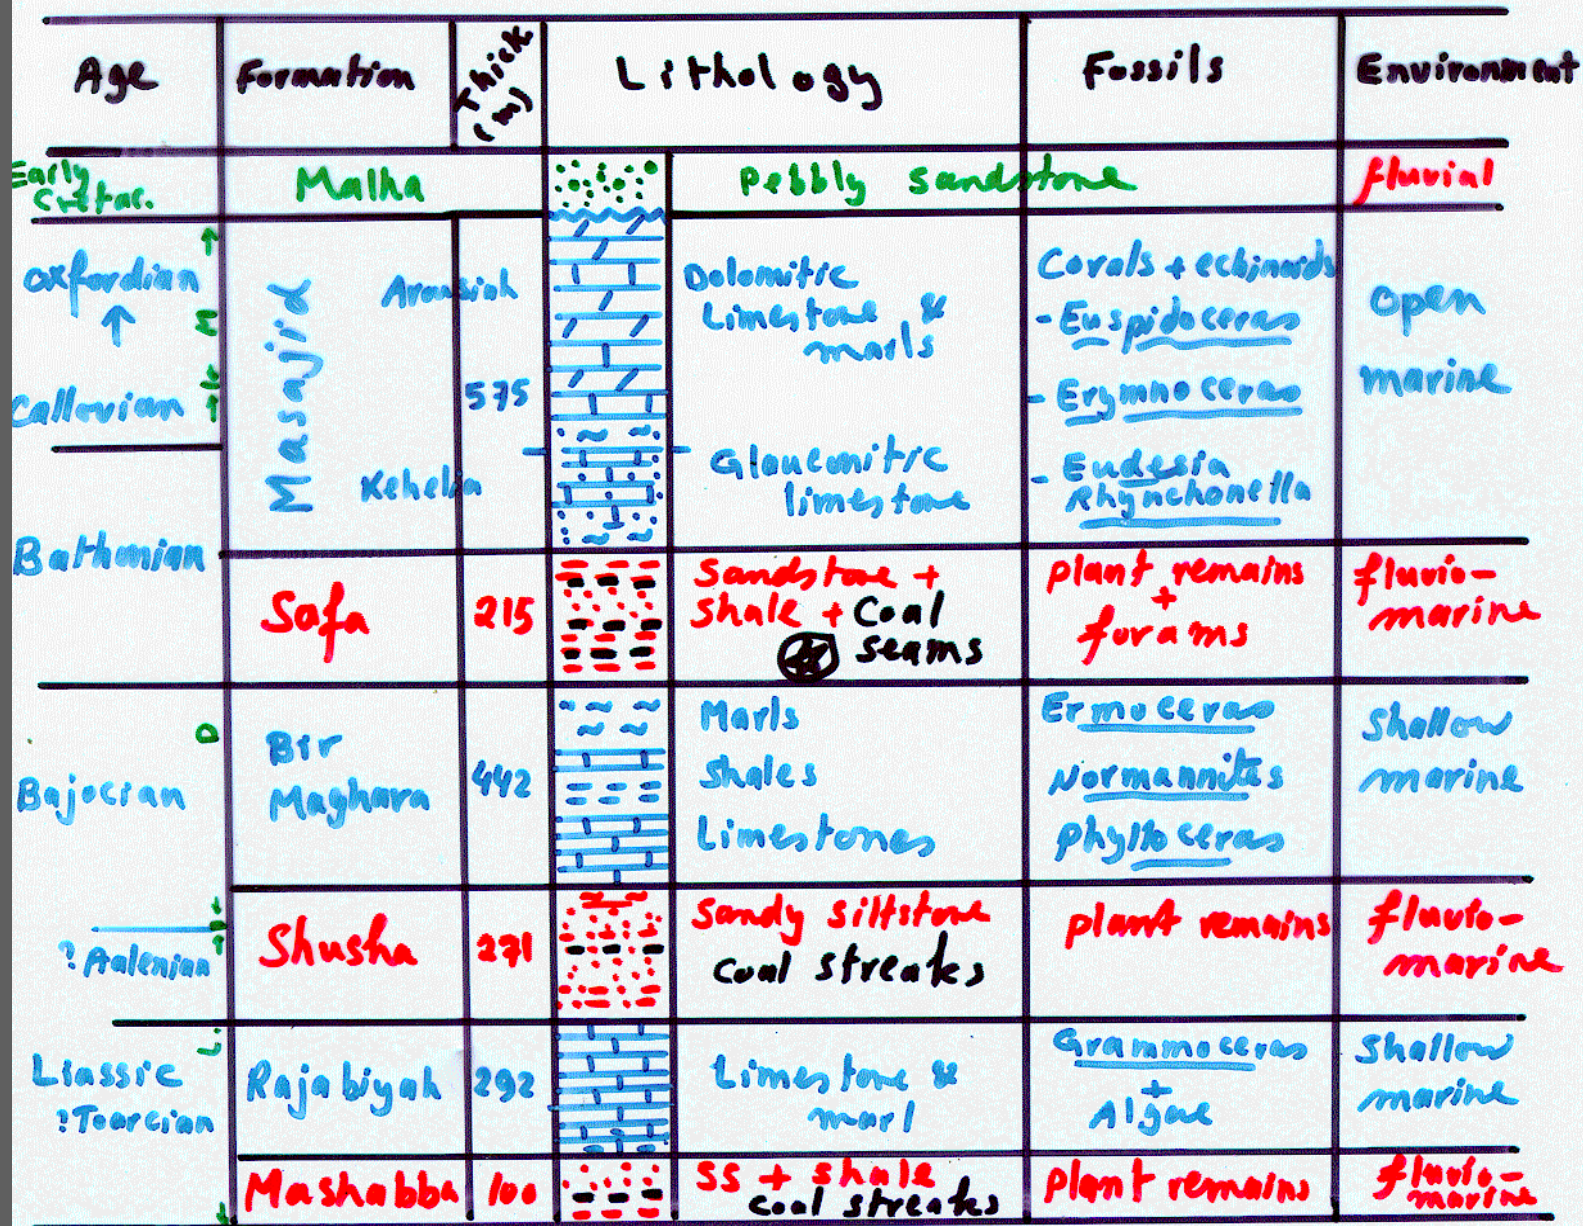 Age
Formation
Thick
(m)
Lithology
Fossils
Environment
Early
Cretac.
Malha
Pebbly sandstone
fluvial
Oxfordian
↑
Callovian
M
Masajid
Arousiah
575
Kehelia
Dolomitic
Limestone &
marls
Glauconitic
limestone
Corals + echinoids
- Euspidoceras
- Erymnoceras
- Eudesia
Rhynchonella
open
marine
Bathonian
Safa
215
Sandstone +
Shale + Coal
seams
plant remains
+
forams
fluvio-
marine
Bajocian
Bir
Maghara
442
Marls
Shales
Limestones
Ermoceras
Normannites
Phylloceras
Shallow
marine
? Aalenian
Shusha
271
Sandy siltstone
Coal streaks
plant remains
fluvio-
marine
Liassic
?Toarcian
Rajabiyah
292
Limestone &
marl
Grammoceras
+
Algae
Shallow
marine
Mashabba
100
SS + shale
coal streaks
plant remains
fluvio-
marine